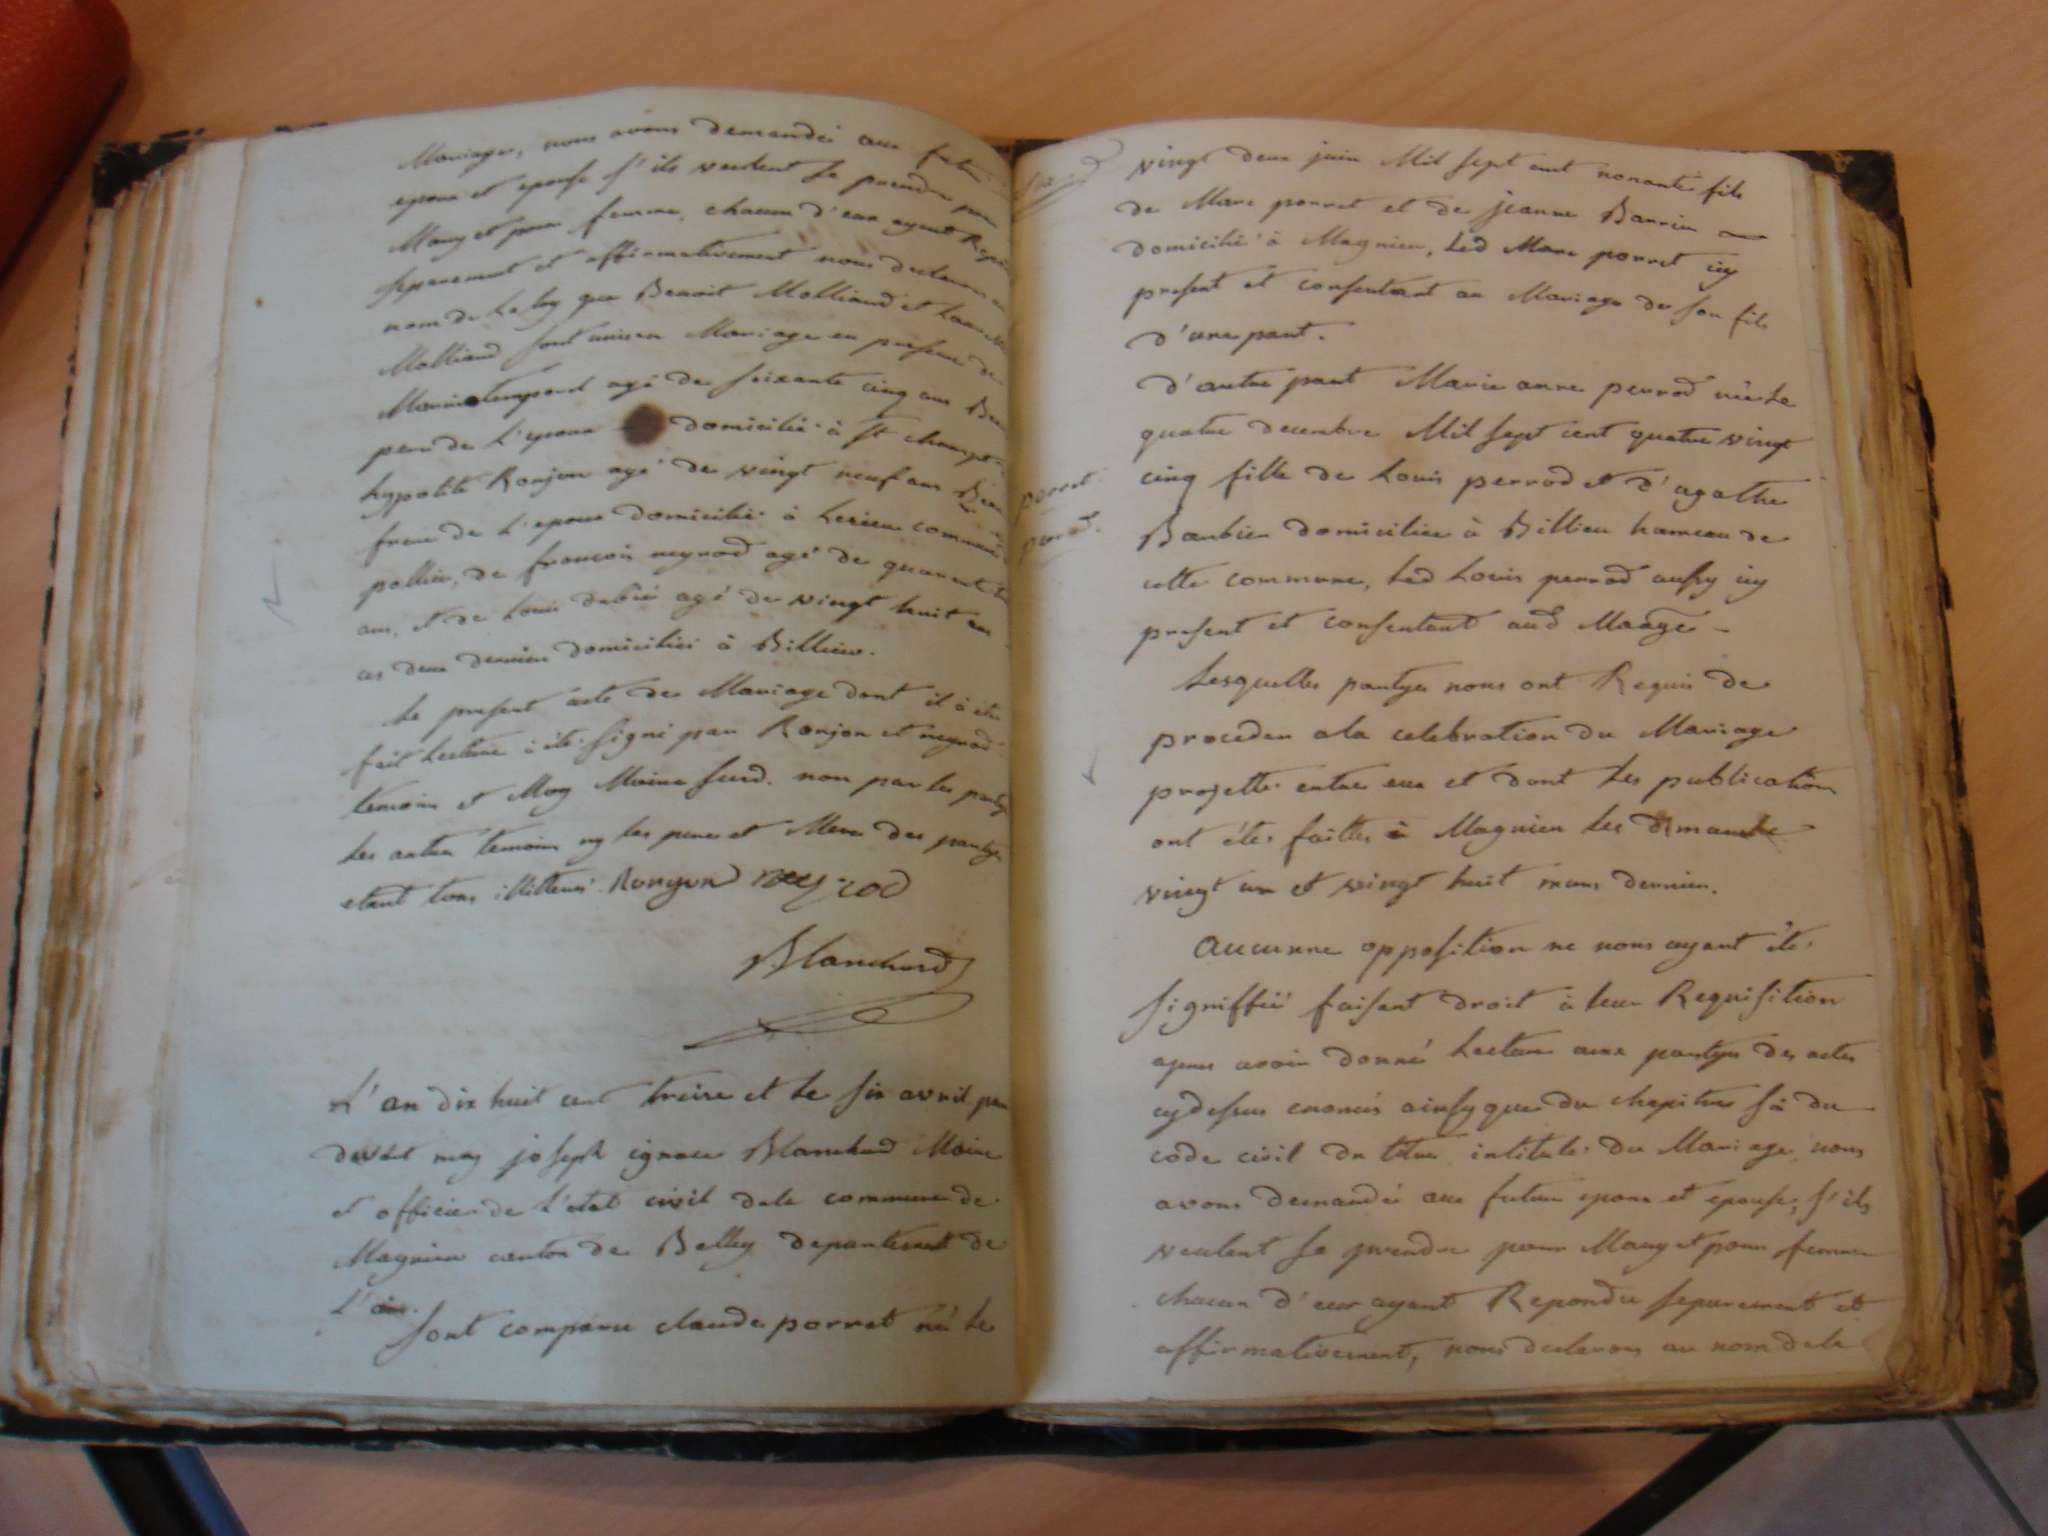 Mariage, nous avons demandé aux futur
epoux et epouse s'ils veulent se prendre pour
Mary et pour femme, chacun d'eux ayant Repon
separement et affirmativement nous declarons au
nom de La loy que Benoit Molliand et
Molliand sont unis en Mariage en presence de
agé de soixante cinq ans
pere de L'epoux domicilié à St champt
hypolite Ronjon agé de vingt neuf ans
frere de L'epoux domicilié à commune
pollieu, de françois neyrod agé de quarante
ans, et de Louis agé de vingt huit ans
ces deux derniers domiciliés à Billieu.
Le present acte de Mariage dont il à été
fait Lecture à été signé par Ronjon et neyrod
temoins et Moy Maire susd. non par les partyes
les autres temoins ny les pere et Mere des partyes
etant tous illitterés Ronyon neyrod
Blanchard
L'an dix huit cent treize et le six avril par
devant moy joseph ignace Blanchard Maire
et officier de L'etat civil de la commune de
Magnieu canton de Belley departement de
L'ain.
sont comparu claude porret né le
vingt deux juin Mil sept cent nonante fils
de Marc porret et de jeanne Barrin
domicilié à Magnieu, Led Marc porret icy
present et consentant au Mariage de son fils
d'une part.
d'autre part Marie anne perrod née Le
quatre decembre Mil sept cent quatre vingt
porret
cinq fille de Louis perrod et d'agathe
perrod.
Barbier domiciliée à Billieu hameau de
cette commune, Led Louis perrod aussy icy
present et consentant aud Maage
Lesquelles partyes nous ont Requis de
proceder a la celebration du Mariage
projetté entre eux et dont les publication
ont étés faittes à Magnieu les dimanche
vingt un et vingt huit mars dernier.
aucunne opposition ne nous ayant été
signiffié faisant droit à leur Requisition
apres avoir donné Lecture aux partyes des actes
cydessus enoncés ainsy que du chapitre six du
code civil du titre intitulé du Mariage nous
avons demandé aux futur epoux et epouse, s'ils
veulent se prendre pour Mary et pour femme
chacun d'eux ayant Repondu separement et
affirmativement, nous declarons au nom de la